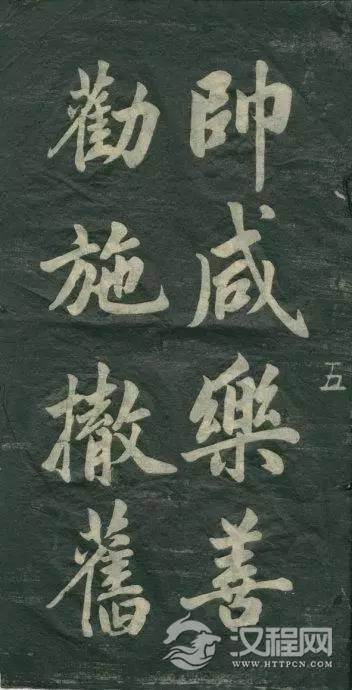 五
帥咸樂善
勸施撤舊
汉程网
WWW.HTTPCN.COM